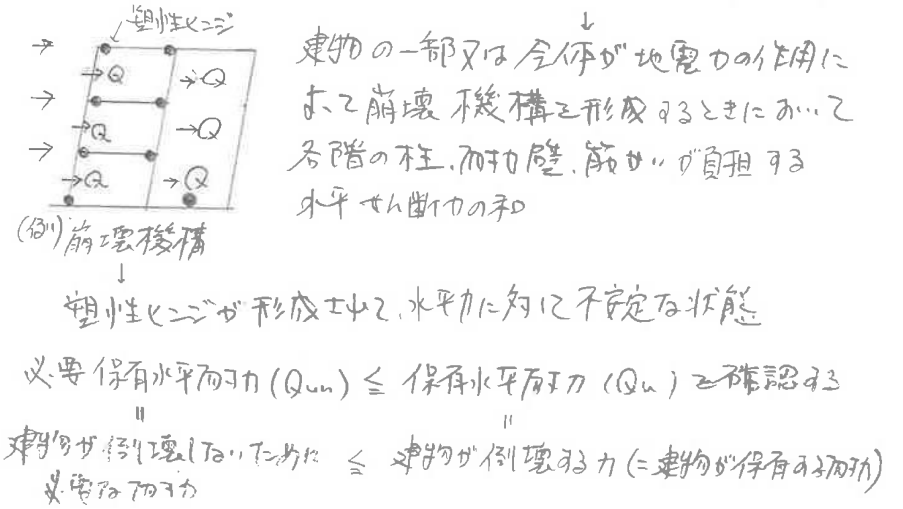 塑性ヒンジ
→ →Q →Q
→ →Q →Q
→ →Q →Q
(例)崩壊機構
↓
建物の一部又は全体が地震力の作用に
よって崩壊機構を形成するときにおいて
各階の柱、耐力壁、筋かいが負担する
水平せん断力の和
↓
塑性ヒンジが形成されて、水平力に対して不安定な状態
必要保有水平耐力(Qun) ≦ 保有水平耐力(Qu)を確認する
〃 〃
建物が倒壊しないために ≦ 建物が倒壊する力(=建物が保有する耐力)
必要な耐力